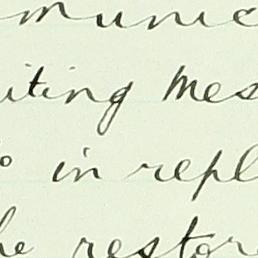 munic
iting Mes
o in repl
he restor